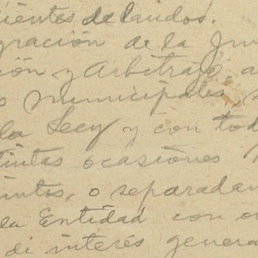 cientes de laudos.
gración de la Jun
ción y Arbitraje a
s municipales,
la Ley y con tod
tintas ocasiones
juntos, o separadam
la Entidad con o
de interés genera